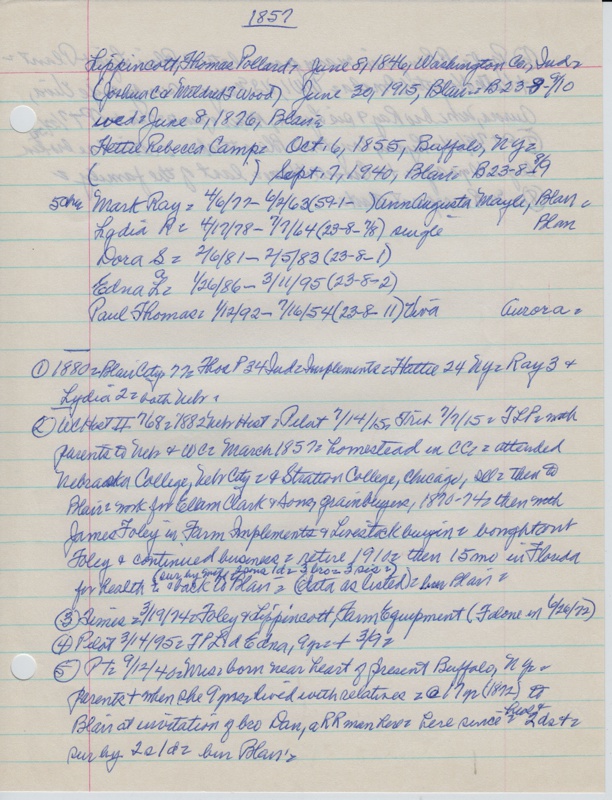 1857
Lippincott, Thomas Pollard = June 8, 1846, Washington Co, Ind =
(Joshua C & Mildred F Wood) June 30, 1915, Blair = B23-8-9/10
wed = June 8, 1876, Blair =
Hettie Rebecca Camp = Oct. 6, 1855, Buffalo, NY =
( ) Sept. 7, 1940, Blair = B23-8-8/9
5 chn Mark Ray = 4/6/77 - 6/2/63 (59-1- ) Ann Augusta Mayle, Blair =
Lydia R = 4/17/78 - 7/7/64 (23-8-7/8) single Blair
Dora S = 2/6/81 - 2/5/83 (23-8-1)
Edna L = 1/26/86 - 3/11/95 (23-8-2)
Paul Thomas = 1/12/92 - 7/16/54 (23-8-11) Viva Aurora =
① 1880 = Blair City 77 = Thos P 34 Ind = Implements = Hattie 24 NY = Ray 3 &
Lydia 2 = both Nebr =
② WC Hist II 768 = 1882 Nebr Hist = Pilot 7/14/15, Trib 7/7/15 = TLP = with
parents to Nebr & WC = March 1857 = homestead in CC = attended
Nebraska College, Nebr City = & Stratton College, Chicago, Ill = then to
Blair = work for Elam Clark & Sons, grain buyers, 1870-74 = then with
James Foley in Farm Implements & Livestock buying = bought out
Foley & continued business = retire 1910 = then 15 mo in Florida
(sur by wife 2 sons 1 d = 3 bro = 3 sis =)
for health = & back to Blair = (data as listed) = bur Blair =
③ Times = 3/19/74 = Foley & Lippincott, Farm Equipment (F alone in 6/26/72)
④ Pilot 3/14/95 = TPL's d Edna, 9 yr = + 3/9 =
⑤ PT = 9/12/40 = Mrs = born near heart of present Buffalo, NY =
parents + when she 9 yrs = lived with relatives = @ 17 yr (1872) to
Blair at invitation of bro Dan, a RR man here = here since = husb & 2 ds + =
sur by 2 s 1 d = bur Blair =